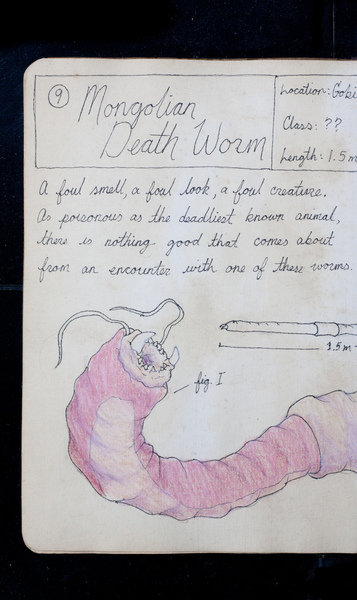 9
Mongolian
Death Worm
Location: Gobi
Class: ??
Length: 1.5m
A foul smell, a foul look, a foul creature.
As poisonous as the deadliest known animal,
there is nothing good that comes about
from an encounter with one of these worms.
1.5m
fig. I